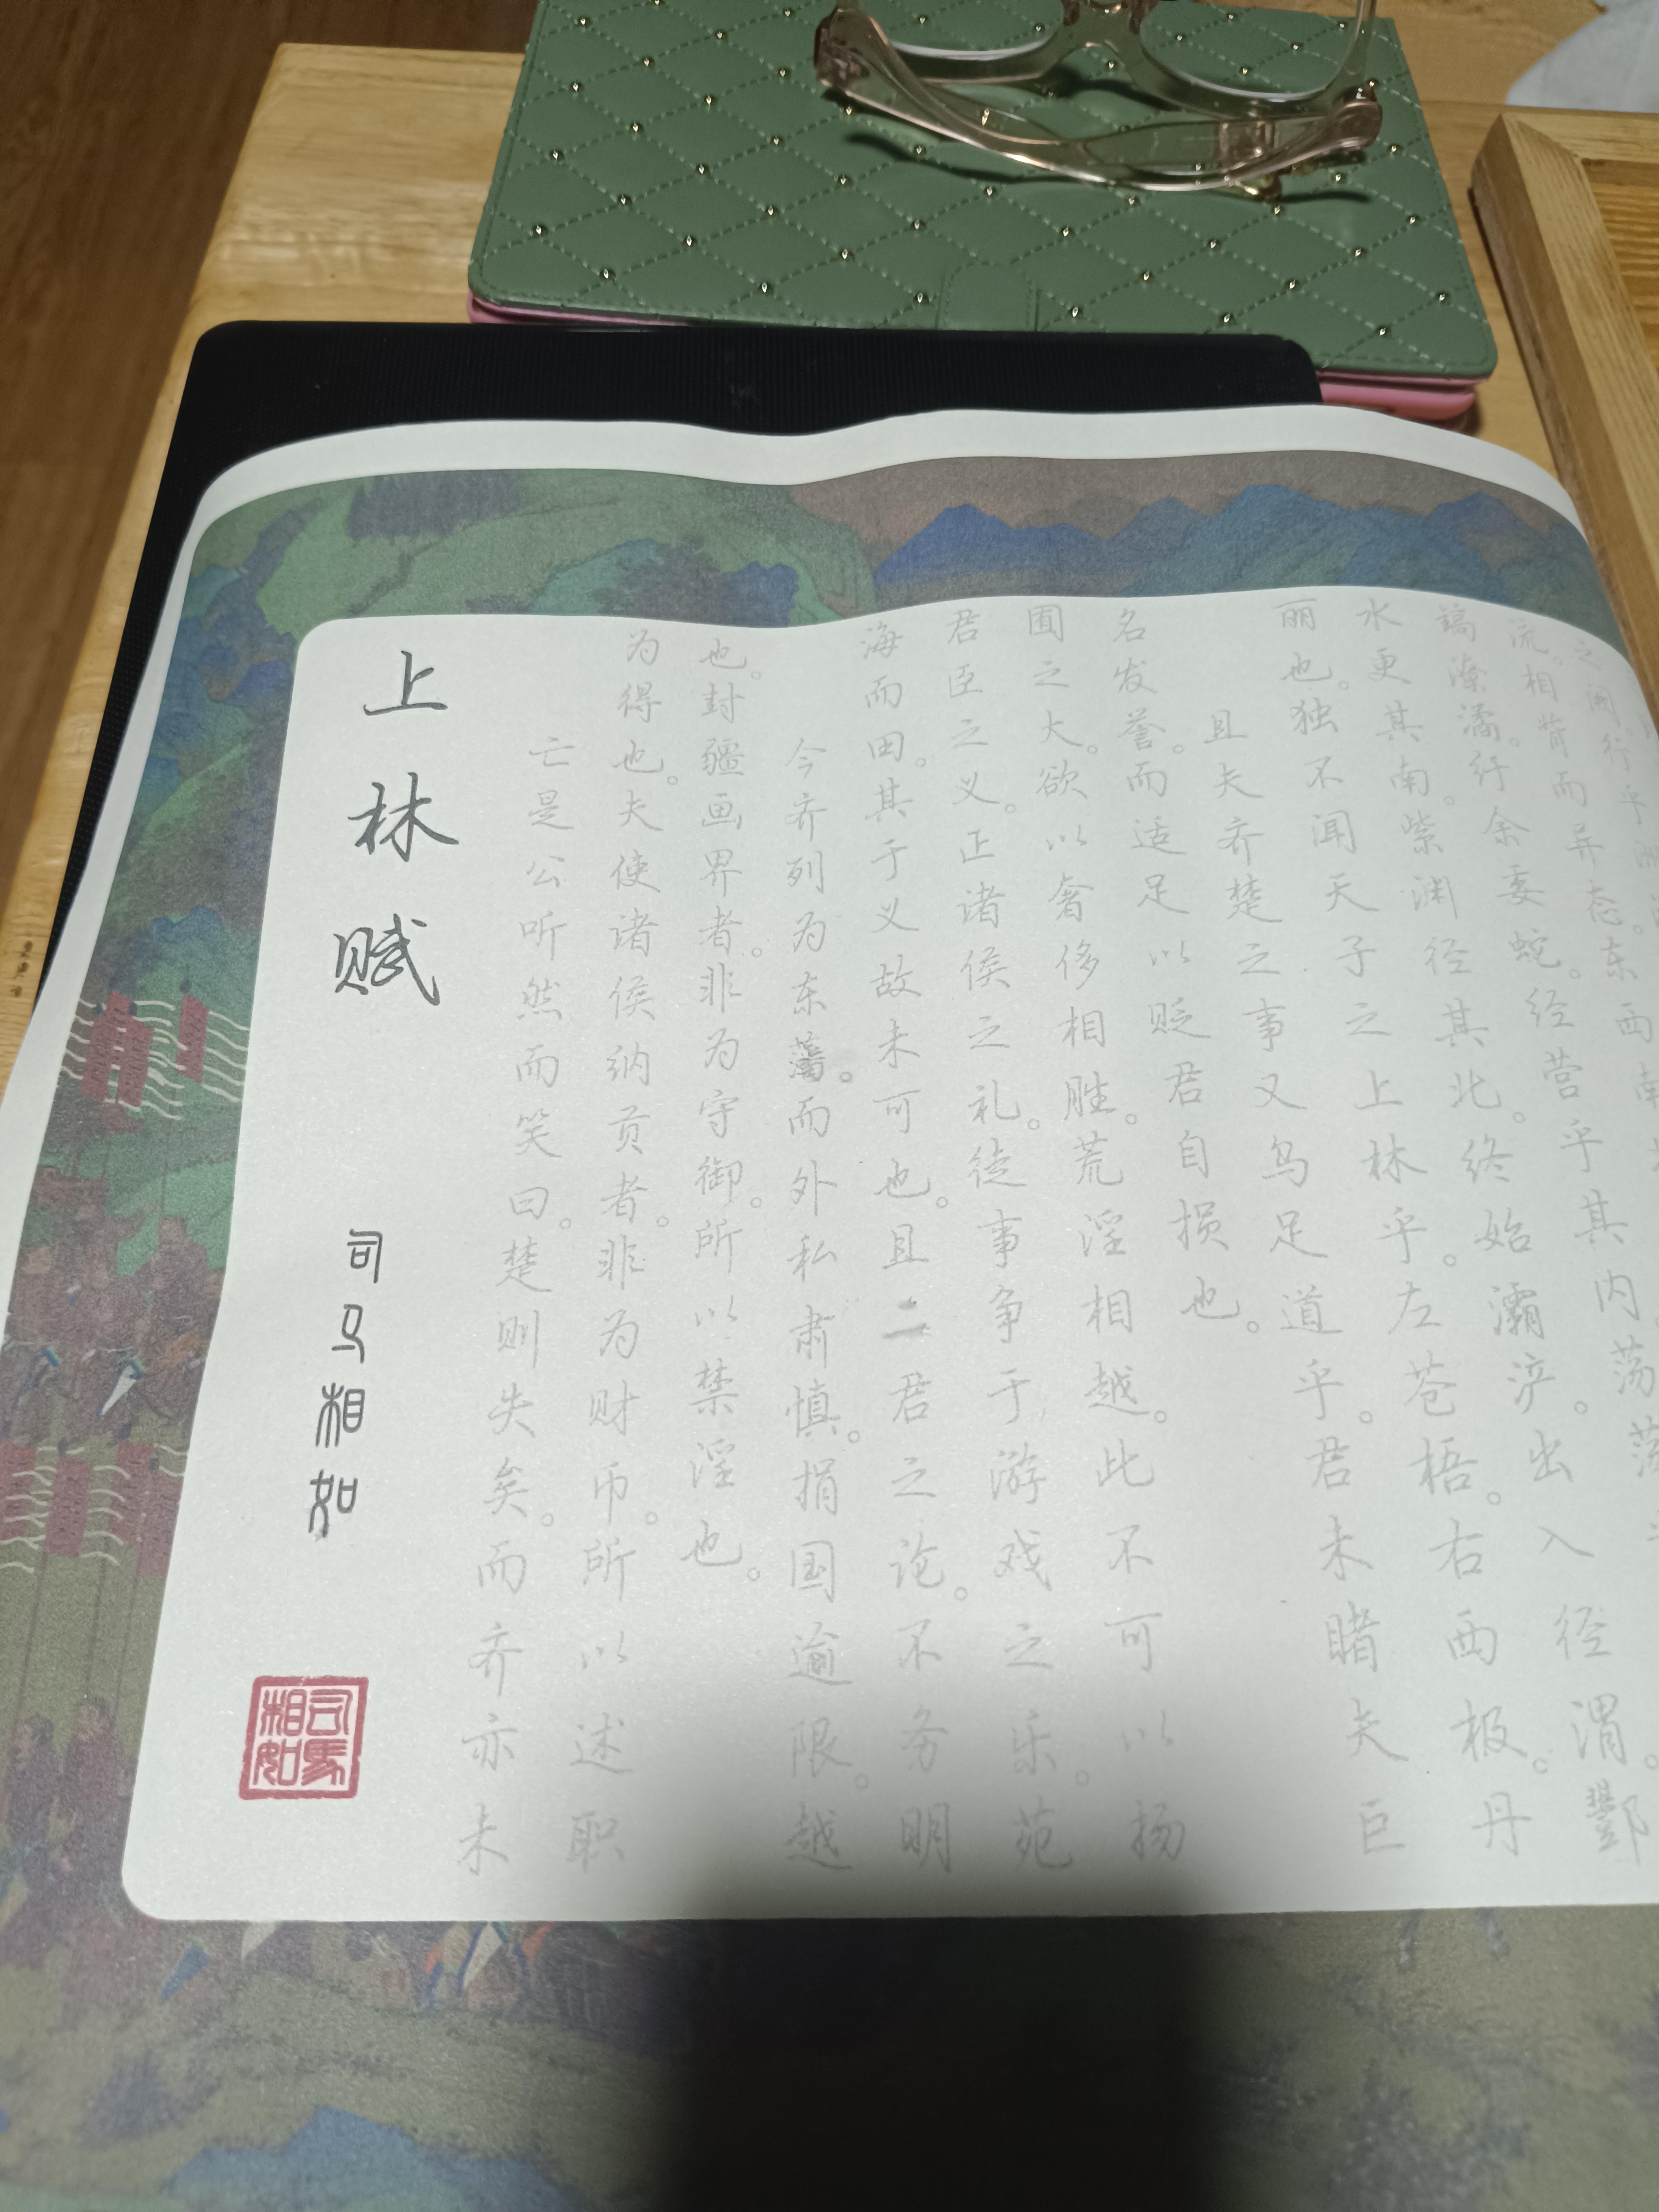 上林赋
司马相如
司马相如
亡是公听然而笑曰。楚则失矣。而齐亦未
为得也。夫使诸侯纳贡者。非为财币。所以述职
也。封疆画界者。非为守御。所以禁淫也。
今齐列为东藩。而外私肃慎。捐国逾限。越
海而田。其于义故未可也。且二君之论。不务明
君臣之义。正诸侯之礼。徒事争于游戏之乐。苑
囿之大。欲以奢侈相胜。荒淫相越。此不可以扬
名发誉。而适足以贬君自损也。
且夫齐楚之事又乌足道乎。君未睹夫巨
丽也。独不闻天子之上林乎。左苍梧。右西极。丹
水更其南。紫渊径其北。终始灞浐。出入径渭。酆
镐潦潏。纡余委蛇。经营乎其内。荡荡
流。相背而异态。东西南
之阙。行乎洲